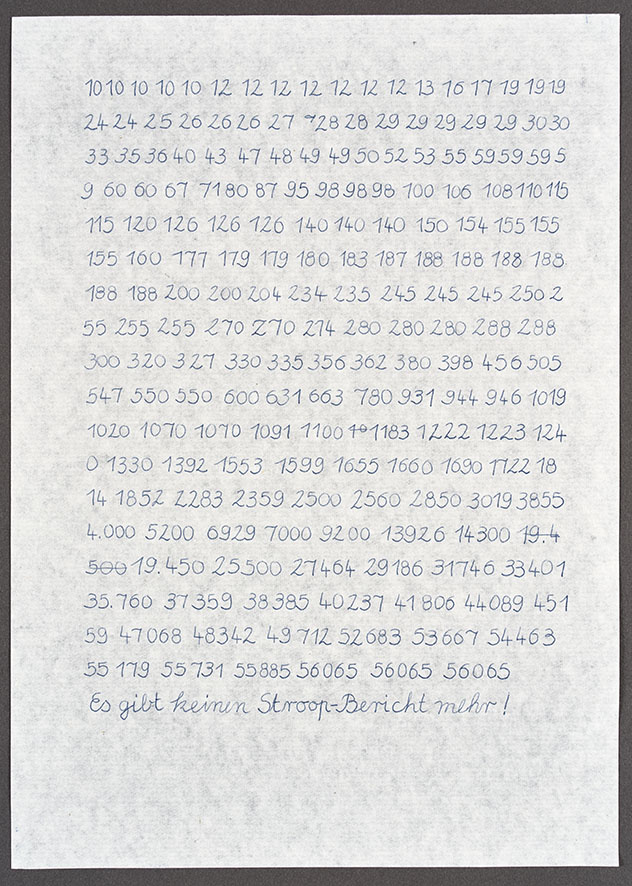 10 10 10 10 10 12 12 12 12 12 12 12 13 16 17 19 19 19
24 24 25 26 26 26 27 28 28 29 29 29 29 29 30 30
33 35 36 40 43 47 48 49 49 50 52 53 55 59 59 59 5
9 60 60 67 71 80 87 95 98 98 98 100 106 108 110 115
115 120 126 126 126 140 140 140 150 154 155 155
155 160 177 179 179 180 183 187 188 188 188 188
188 188 200 200 204 234 235 245 245 245 250 2
55 255 255 270 270 274 280 280 280 288 288
300 320 327 330 335 356 362 380 398 456 505
547 550 550 600 631 663 780 931 944 946 1019
1020 1070 1070 1091 1100 10 1183 1222 1223 124
0 1330 1392 1553 1599 1655 1660 1690 1722 18
14 1852 2283 2359 2500 2560 2850 3019 3855
4.000 5200 6929 7000 9200 13926 14300 19.4
500 19.450 25500 27464 29186 31746 33401
35.760 37359 38385 40237 41806 44089 451
59 47068 48342 49712 52683 53667 54463
55 179 55731 55885 56065 56065 56065
Es gibt keinen Stroop-Bericht mehr!